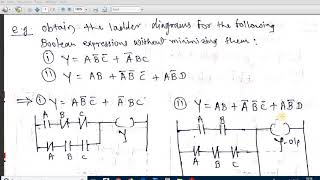 e.g. obtain the ladder diagrams for the following
Boolean expressions without minimizing them:
(i) Y = AB̅C̅ + A̅BC
(ii) Y = AB + A̅B̅C̅ + A̅B̅D
⇒ (i) Y = AB̅C̅ + A̅BC
A B C
A B C
Y
(ii) Y = AB + A̅B̅C̅ + A̅B̅D
A B
A B C
Y-o/p